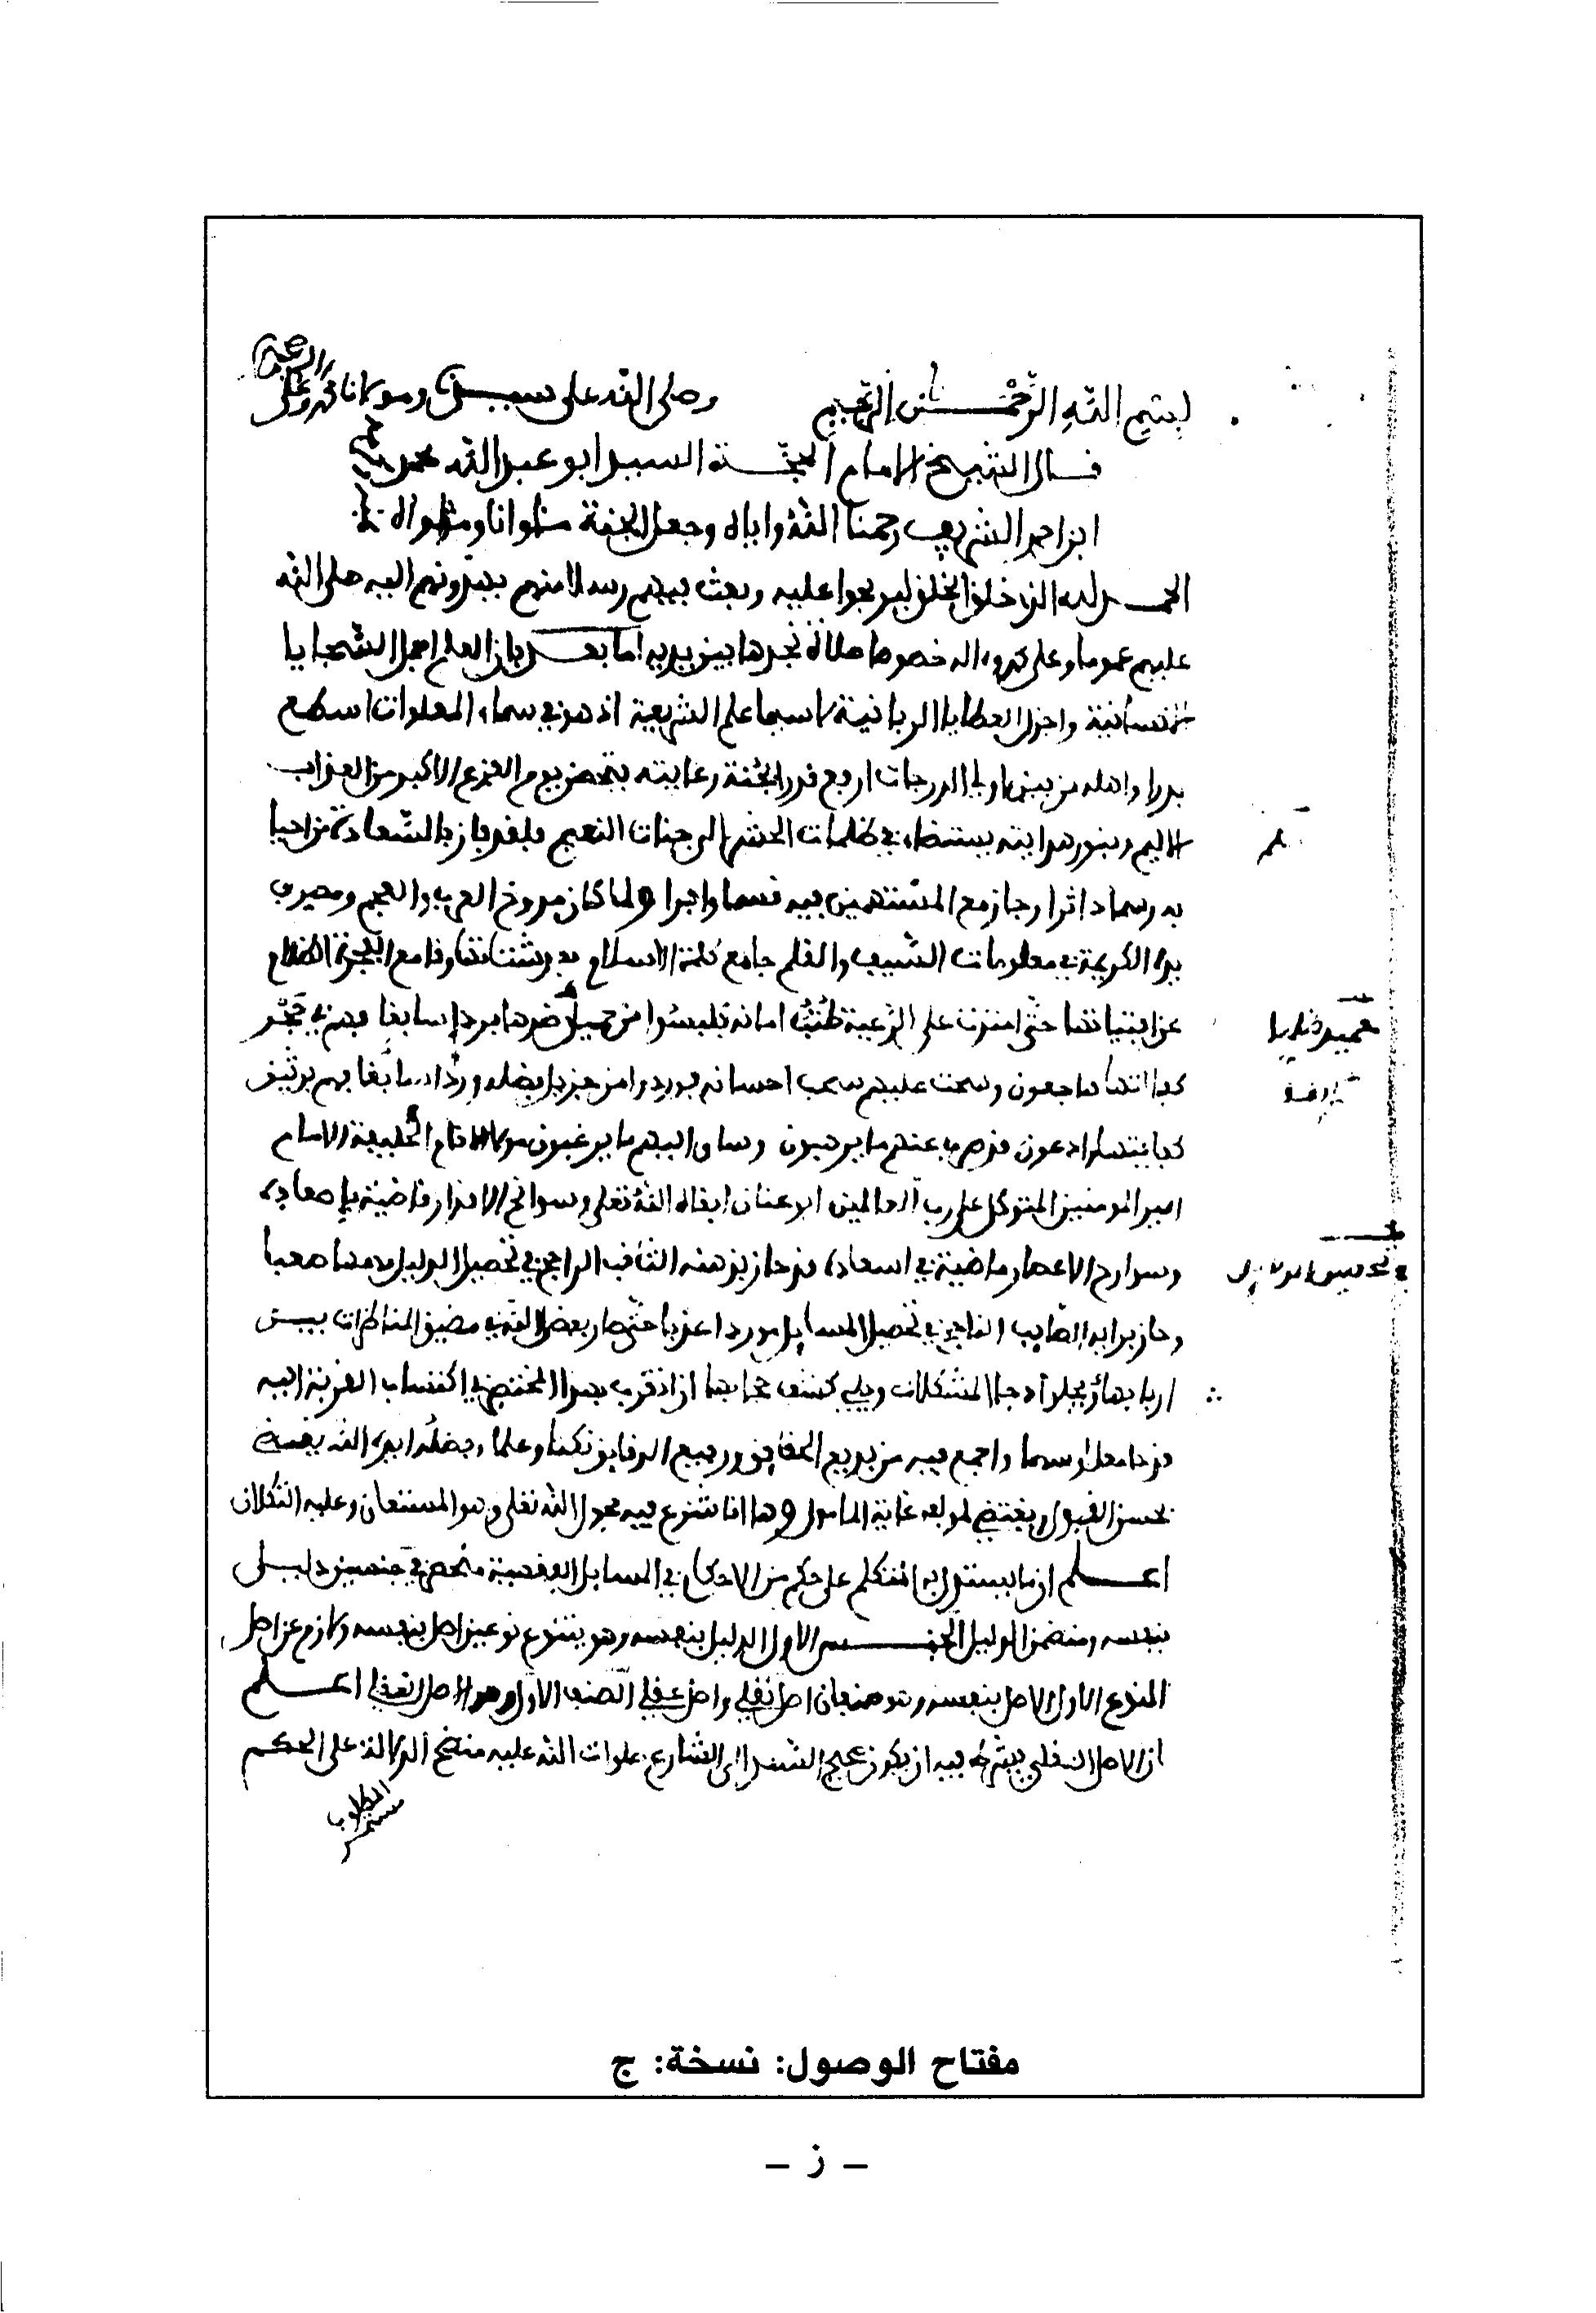 بسم الله الرحمن الرحيم وصلى الله على سيدنا ومولانا محمد وعلى اله وصحبه
قال الشيخ الامام الحجة السيد ابو عبد الله محمد بن
ابن احمد الشريف رحمنا الله واياه وجعل الجنة مثوانا ومثواه
الحمد لله الذي خلق الخلق ليوجوا عليه وبعث فيهم رسلا منهم يهدونهم اليه صلى الله
عليهم عموما وعلى محمد واله خصوصا صلاة نجدها بين يديه اما بعد فان العلم اجمل السجايا
النفسانية واجزل العطايا الربانية لا سيما علم الشريعة اذ هو في سماء المعلومات اسطع
بدرا واهله من بين اولي الدرجات ارفع قدرا لجنة رعايته يتحصن يوم الفزع الاكبر من العذاب
الاليم وبنور هدايته يستضاء في ظلمات الحشر الى جنات النعيم فلقد فاز بالسعادة من احيا
به رسما داثرا وحاز مع المستهمين فيه قسما وافرا ولما كان مردخ العرب والعجم ومصرف
يده الكريمة في معلومات السيف والقلم جامع كلمة الاسلام بعد شتاتها وقامع الفجرة الظلام
عن افتياتها حتى امتدت على الرعية طنب امانه فلبسوا من جميل بردا سابغا فهم في
كما انتها هاجعون وسحت عليهم سحب احسانه فوردوا من جزيل فضله وردا سائغا فهم
كما ادعون فرفع عنهم ما يرهبون وساق اليهم ما يرغبون مولانا الخليفة الامام
امير المومنين المتوكل على رب العالمين ابو عنان ابقاه الله تعلى وسوانح الاقدار قاضية باصعاده
وسوارح الاعصار ماضية في اسعاده من حاز بذهنه الثاقب الراجح في تحصيل الدلايل صعبا
وحاز برايه الصايب الناجح في تحصيل المسايل موردا عذبا حتى صار بفضل الله في مضيق المناظرات بيـن
اربابها يجلو دجا المشكلات ويلي كشف حجابها ان اتقرب بهذا المختصر في اكتساب القربة اليه
واجمع فيه من بديع الحقايق ورفيع الدقايق نكتا وعلما وبفضله ايده الله يقتضي
بحسن القبول ويقتضي لمولفه غاية المامول وها انا شارع فيه بحول الله تعلى وهو المستعان وعليه التكلان
اعلم ان ما يستدل به المتكلم على حكم من الاحكام في المسايل الفقهية منحصر في جنسين دليـل
بنفسه ومتضمن الدليل الجنس الاول الدليل بنفسه وهو يتنوع نوعين اصل بنفسه ولازم عن اصل
النوع الاول الاصل بنفسه وهو صنفان اصل نقلي واصل عقلي الصنف الاول وهو الاصل النقلي اعلم
ان الاصل النقلي يشترط فيه ان يكون صحيح السند الى الشارع صلوات الله عليه متضح الدلالة على الحكم
المطلوب
مفتاح الوصول: نسخة: ج
- ز -